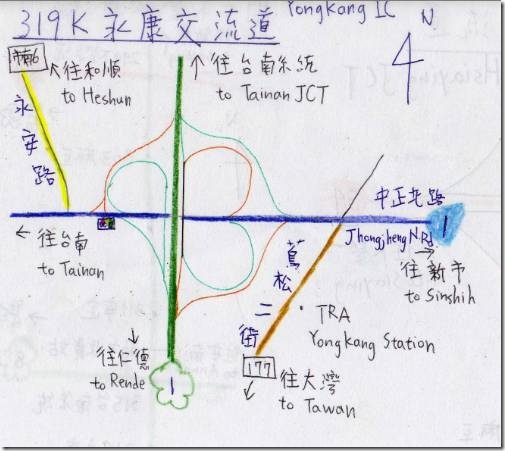 319K 永康交流道
YongKang IC
N
市南6
↖往和順
to Heshun
↑往台南系統
to Tainan JCT
永安路
中正北路
1
JhongJheng N Rd
← 往台南
to Tainan
→
往新市
to Sinshih
蔦松二街
TRA
YongKang Station
往仁德↓
to Rende
1
177
↙
往大灣
to Tawan